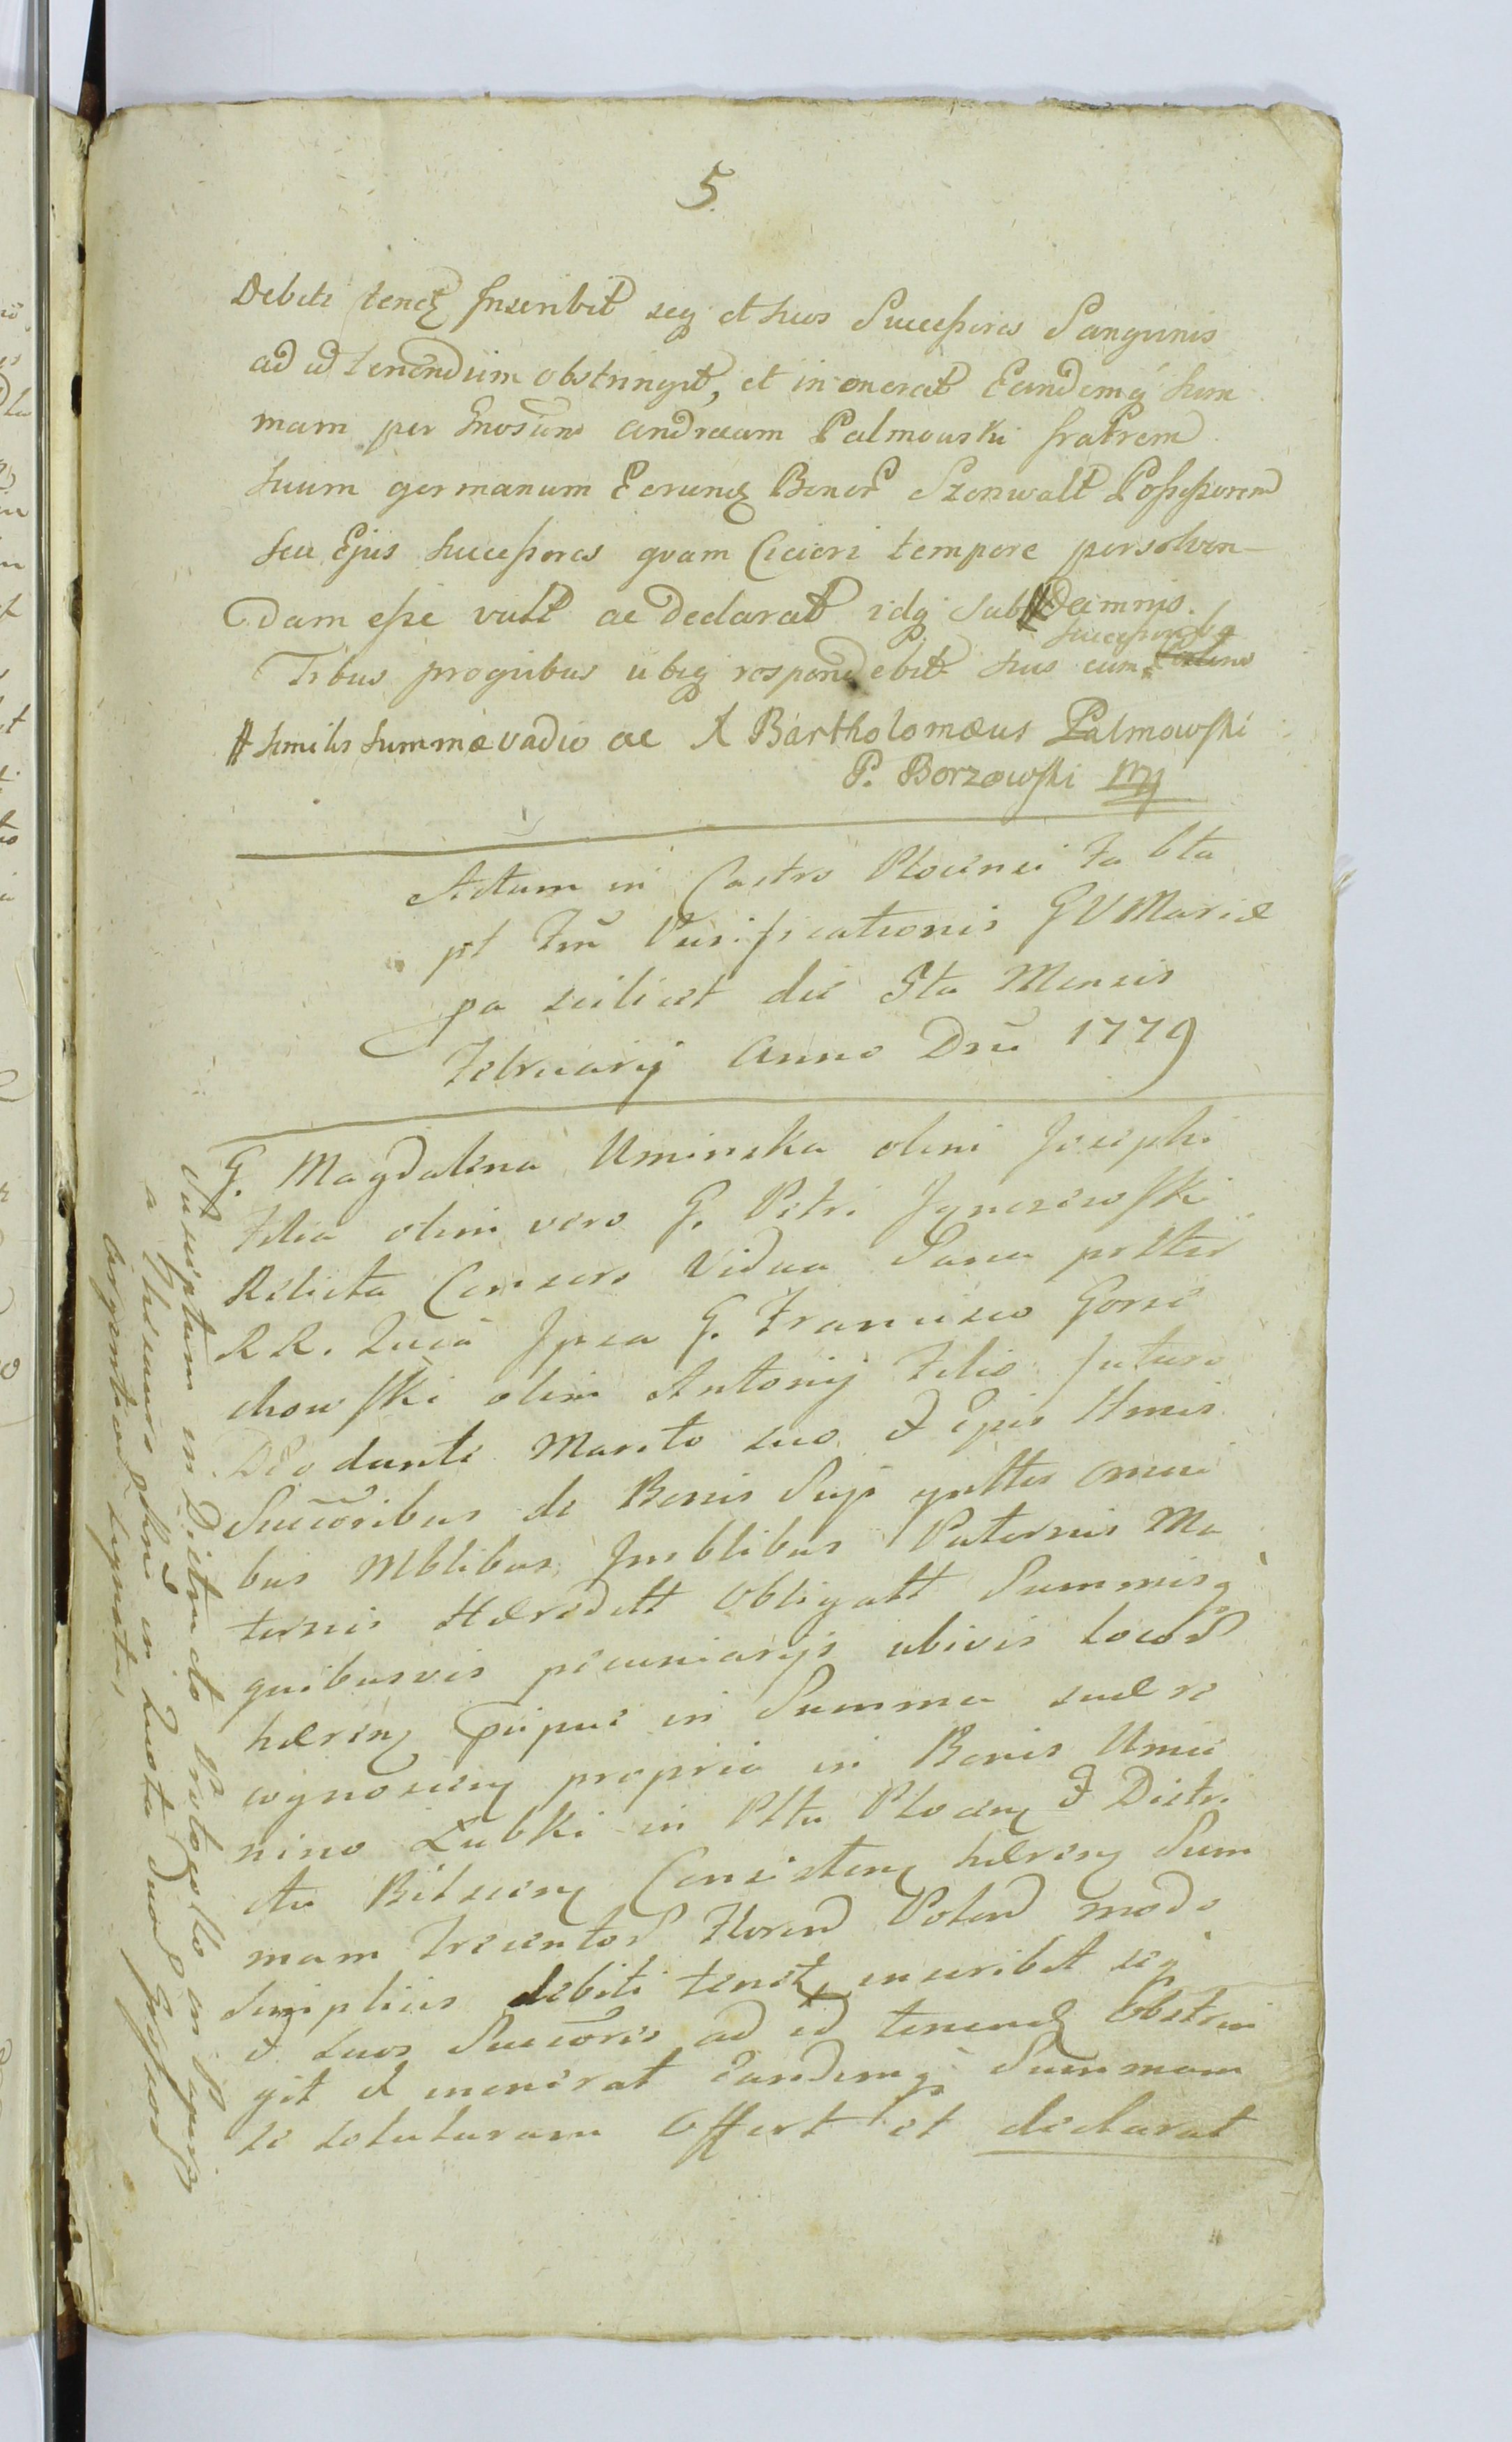 5.
Debiti tenetz Inscribit seq et suos Successores Sanguinis
ad id tenendum obstringit, et in onerat Eandemq Sum
mam per Gnosum Andreaam Palmouski fratrem
suum germanum Eorundz Bonor Szonwalt Possessorem
seu Ejus Successores quam Cicieri tempore persolven-
dam esse vult ac declarat idq sub # Damnis.
successoribq
Tibus proquibus ubiq respondebit suis cum
# similis summæ vadio ac X Bartholomæus Palmowski
P. Borzewski mp
Actum in Castro Plocensi Fa bta
pt Fm Purificationis GVMariæ
pa scilicet die 3ta Mensis
Februarij Anno Dni 1779
G. Magdalena Uminska olim Josephi
Filia olim vero G. Petri
Relicta Consors Vidua Sana prtter
R R. Ipsa G. Francisco Gorzé
chowski olim Antonij Filio futuro
Deo dante Marito suo & Ejus ltmis
Succoribus de Bonis Suis gnltter omni
bus Mblibus, Imblibus Paternis Ma
ternis Hæreditt Obligatt Summisq
quibusvis pecuniarijs ubivis locor
hæren Pcipue in Summa suæ re
cognoscen propria in Bonis Umie
nino Łubki in Pttu Plocen & Distri
ctu Bielscen Consisten hæren Sum
mam Trecentor Floren Polon modo
simplicis debiti tenetz inscribit seq
& suos Succores ad id tenend Obstrin
git et inonerat Eandemq Summam
se soluturam Offert et declarat
Susceptum in Distincto Protocollo in Papiro
a Thesauro in Quota duor Grossor
argenteor Signata,